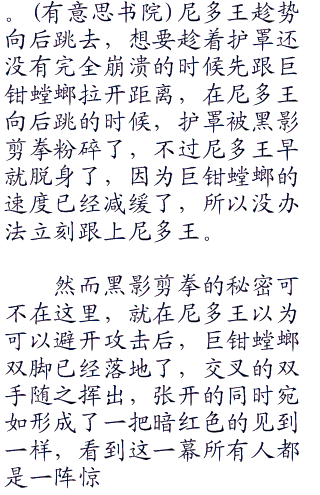 。(有意思书院)尼多王趁势
向后跳去，想要趁着护罩还
没有完全崩溃的时候先跟巨
钳螳螂拉开距离，在尼多王
向后跳的时候，护罩被黑影
剪拳粉碎了，不过尼多王早
就脱身了，因为巨钳螳螂的
速度已经减缓了，所以没办
法立刻跟上尼多王。
然而黑影剪拳的秘密可
不在这里，就在尼多王以为
可以避开攻击后，巨钳螳螂
双脚已经落地了，交叉的双
手随之挥出，张开的同时宛
如形成了一把暗红色的见到
一样，看到这一幕所有人都
是一阵惊